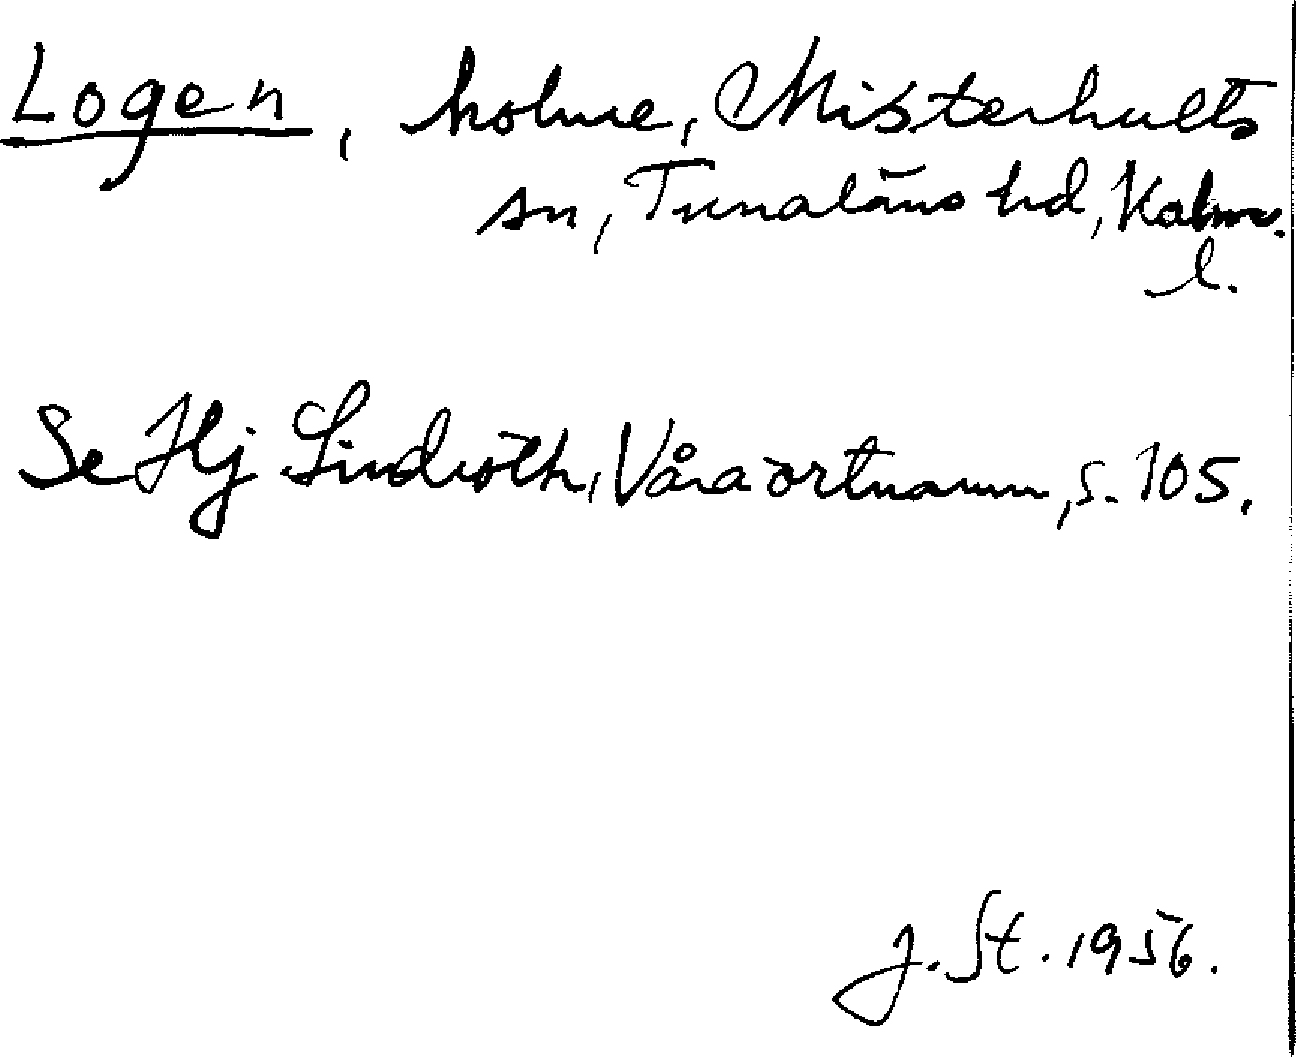 Logen, holme, Misterhults
sn, Tunaläns hd, Kalm.
l.
Se Hj Lindroth, Våra ortnamn, s. 105.
J. St. 1956.